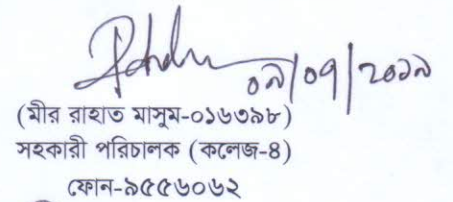 ০৯/০৭/২০১৯
(মীর রাহাত মাসুম-০১৬৩৯৮)
সহকারী পরিচালক (কলেজ-৪)
ফোন-৯৫৫৬০৬২